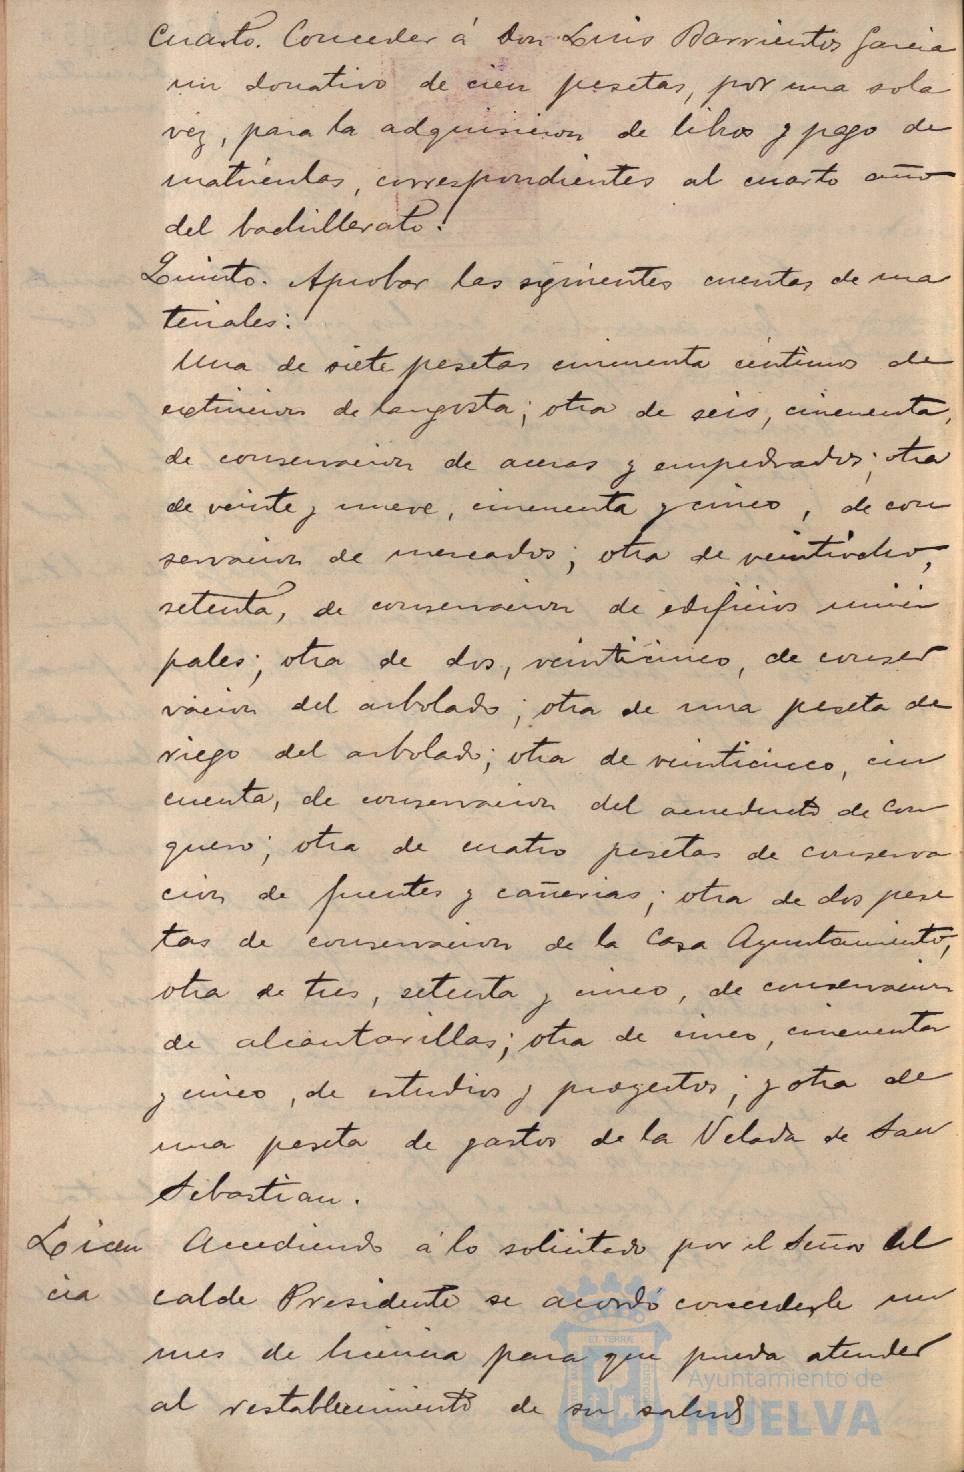 Cuarto. Conceder á Don Luis Barrientos Garcia
un donativo de cien pesetas, por una sola
vez, para la adquisicion de libros y pago de
matriculas, correspondientes al cuarto año
del bachillerato.
Quinto. Aprobar las siguientes cuentas de ma
teriales:
Una de siete pesetas cincuenta céntimos de
extincion de langosta; otra de seis, cincuenta,
de conservacion de aceras y empedrados; otra
de veinte y nueve, cincuenta y cinco, de con
servacion de mercados; otra de veintiocho,
setenta, de conservacion de edificios munici
pales; otra de dos, veinticinco, de conser
vacion del arbolado; otra de una peseta de
riego del arbolado; otra de veinticinco, cin
cuenta, de conservacion del acueducto de Con
quero; otra de cuatro pesetas de conserva
cion de fuentes y cañerias; otra de dos pese
tas de conservacion de la Casa Ayuntamiento,
otra de tres, setenta y cinco, de conservacion
de alcantarillas; otra de cinco, cincuenta
y cinco, de estudios y proyectos; y otra de
una peseta de gastos de la Velada de San
Sebastian.
Licen Accediendo á lo solicitado por el Señor Al
cia calde Presidente se acordó concederle un
mes de licencia para que pueda atender
al restablecimiento de su salud
Ayuntamiento de
HUELVA